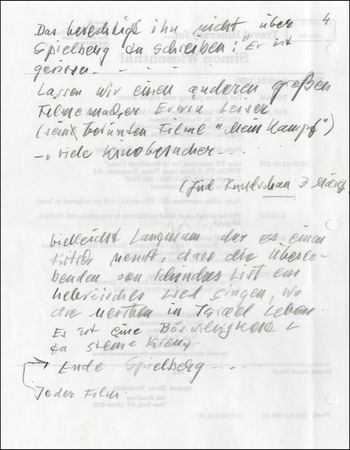 4
Das berechtigt ihn nicht über
Spielberg zu schreiben: "Er ist
gerissen...
Lassen wir einen anderen großen
Filmemacher Erwin Leiser
(seine berühmten Filme "Mein Kampf")
- viele Kinobesucher...
(Jüd Rundschau 3 März
Vielleicht Langsam der es einen
Kitsch nennt, dass die Überle-
benden von Schindlers List ein
hebreisches Lied singen, wo
die meisten in Israel Leben
Es ist eine
Ende Spielberg...
Jeder Film